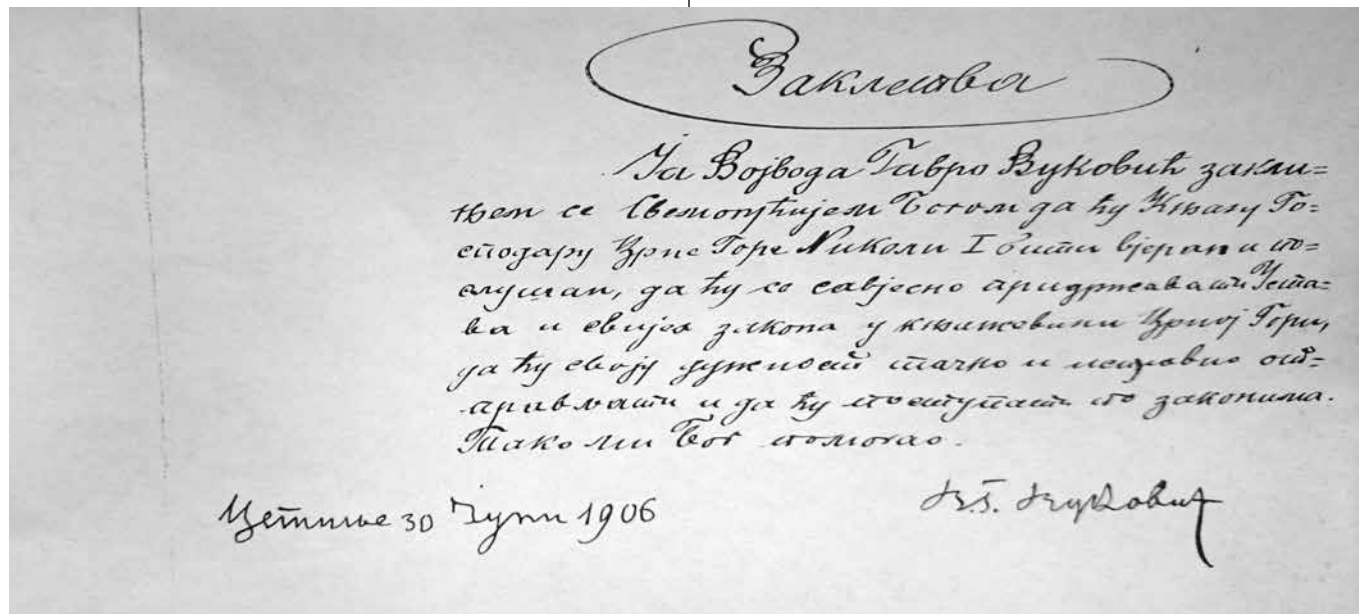 Заклетва
Ја Војвода Гавро Вуковић закли=
њем се Свемогућијем Богом да ћу Књазу Го=
сподару Црне Горе Николи I бити вјеран и по=
слушан, да ћу се савјесно придржавати Уста=
ва и свијех закона у књажевини Црној Гори,
да ћу своју дужност тачно и исправно от=
прављати и да ћу поступати по законима.
Тако ми Бог помогао.
Цетиње 30 Јуни 1906
В.Г. Вуковић